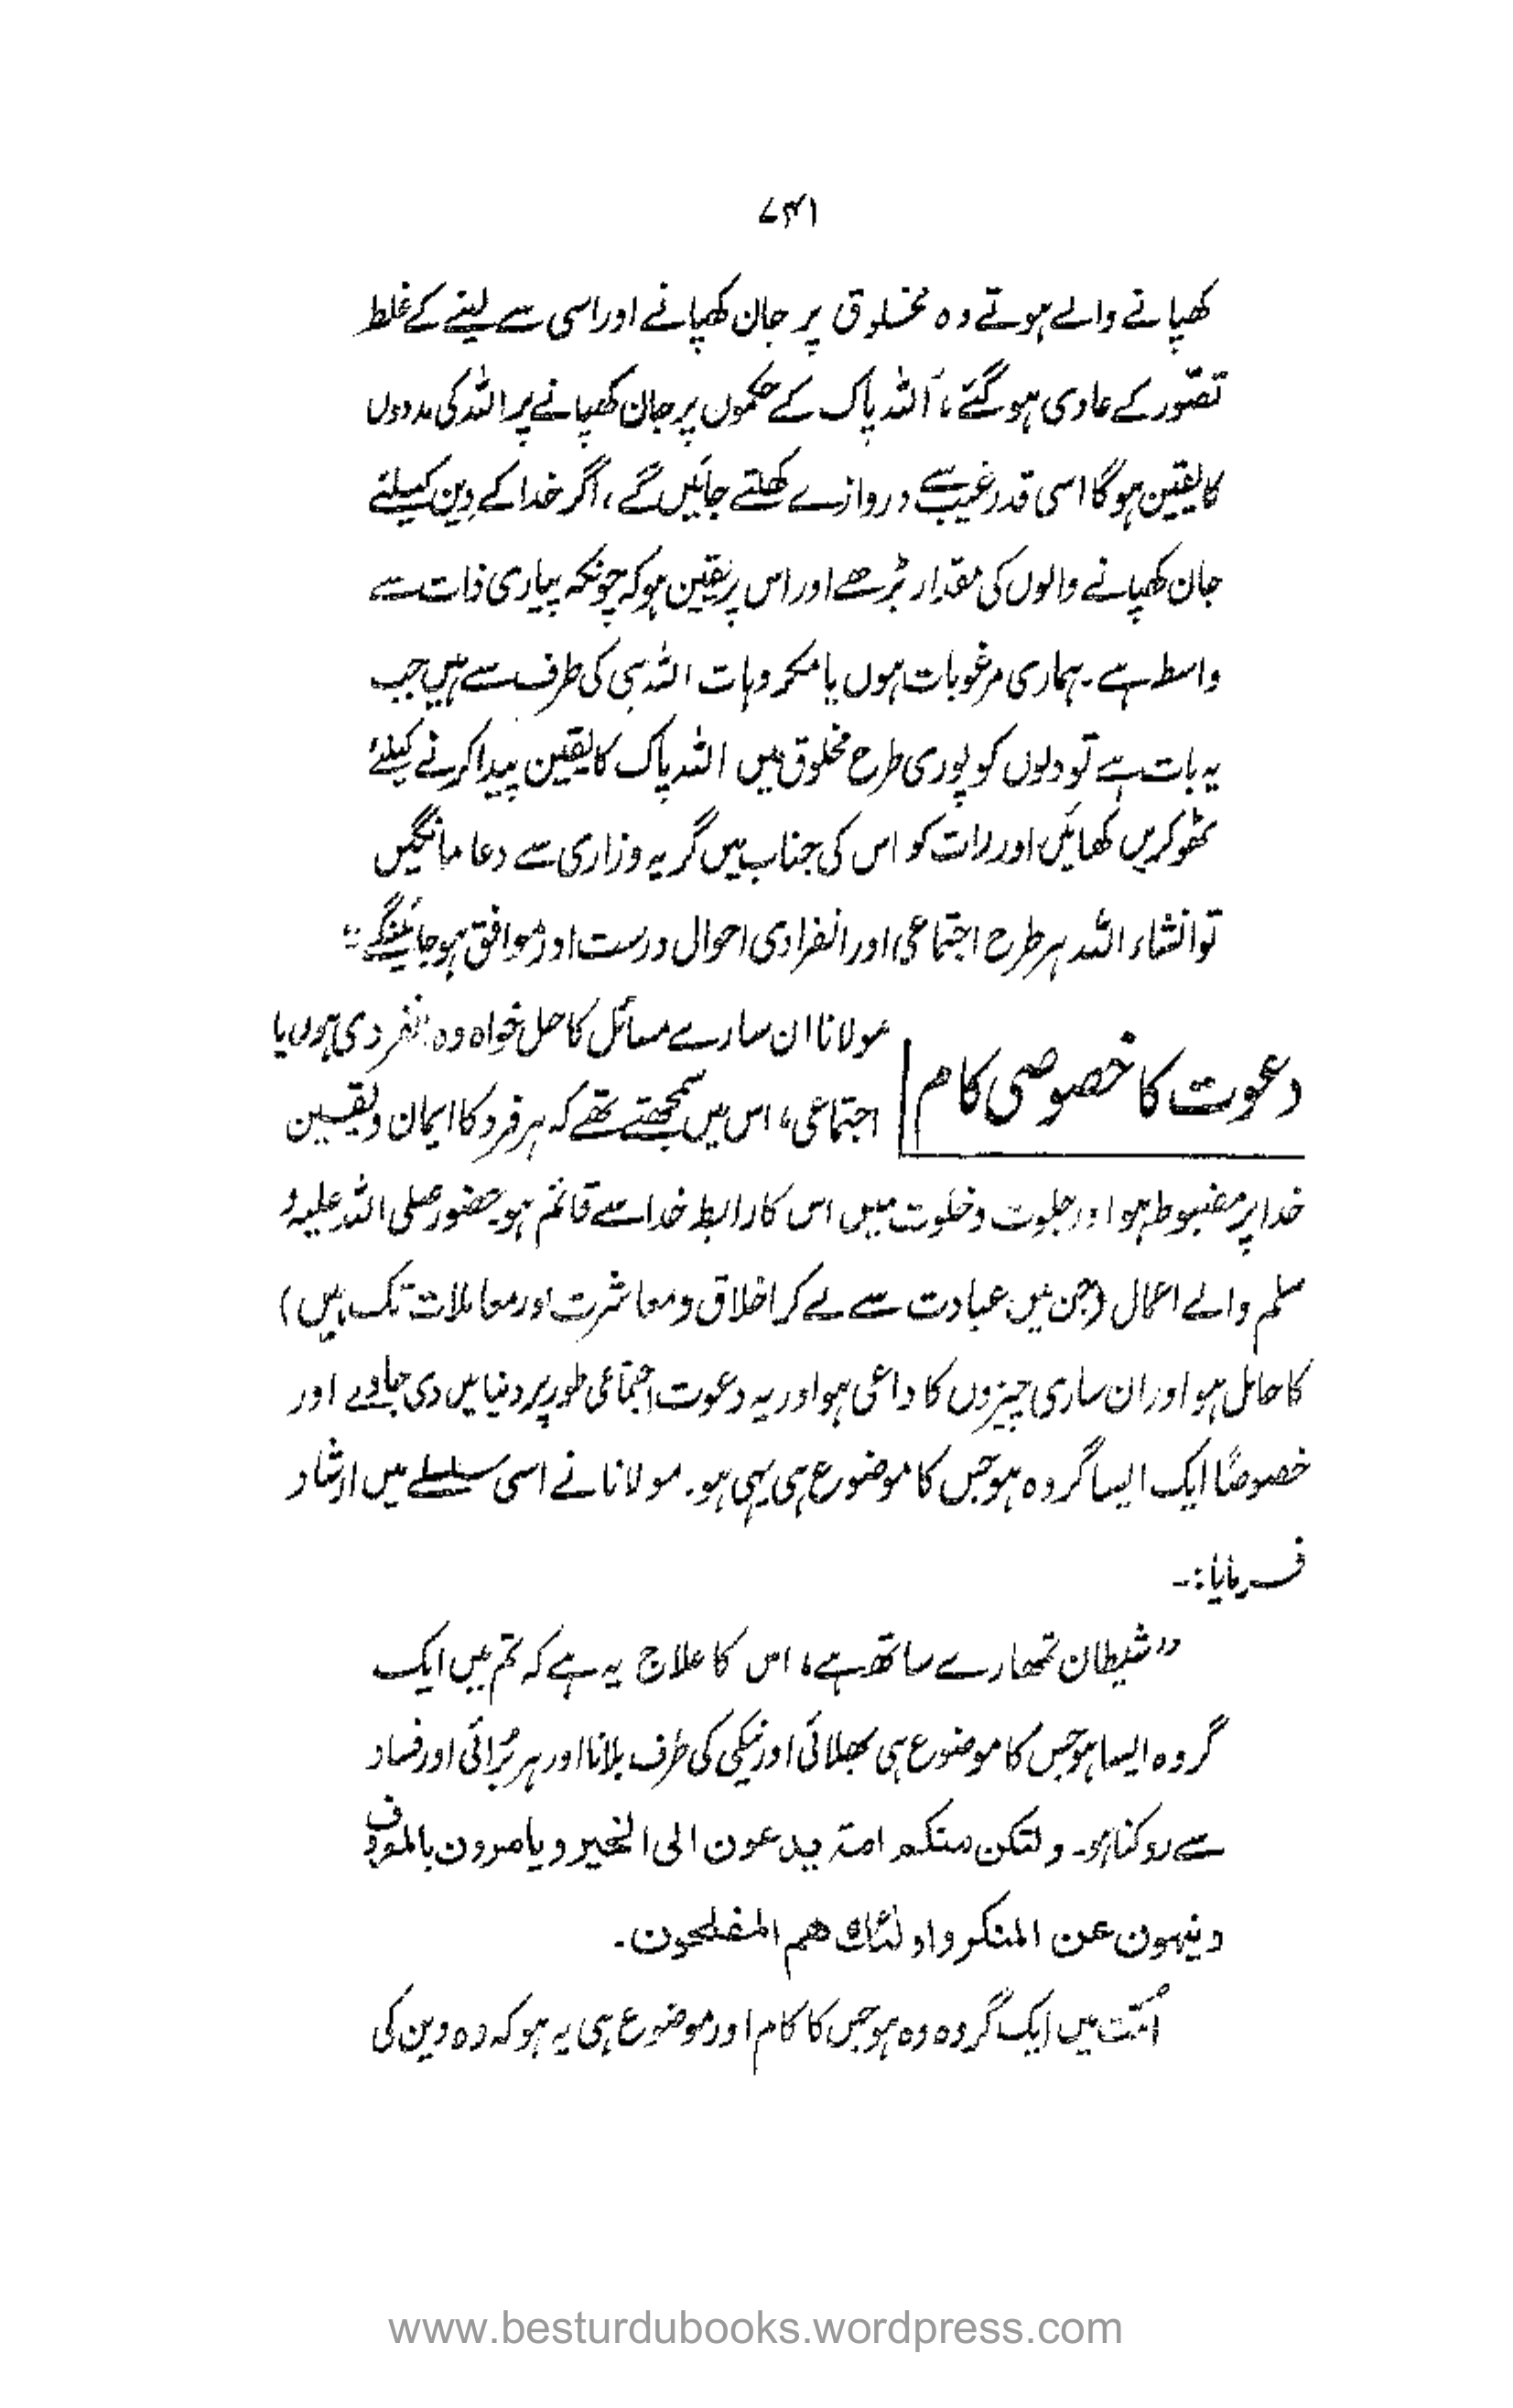 ۷۴۱
کھپانے والے ہوتے وہ مخلوق پر جان کھپانے اور اسی سے لینے کے غلط
تصّور کے عادی ہو گئے، اللہ پاک کے حکموں پر جان کھپانے پر اللہ کی مددوں
کا یقین ہوگا اسی قدر غیب سے دروازے کھلتے جائیں گے، اگر خدا کے دین کیلئے
جان کھپانے والوں کی مقدار بڑھے اور اس پر یقین ہو کہ چونکہ پیاری ذات سے
واسطہ ہے۔ ہماری مرغوبات ہوں یا مکروہات اللہ ہی کی طرف سے ہیں جب
یہ بات ہے تو دلوں کو پوری طرح مخلوق میں اللہ پاک کا یقین پیدا کرنے کیلئے
ٹھوکریں کھائیں اور رات کو اس کی جناب میں گریہ و زاری سے دعا مانگیں
تو انشاء اللہ ہر طرح اجتماعی اور انفرادی احوال درست اور موافق ہو جائینگے"
دعوت کا خصوصی کام
مولانا ان سارے مسائل کا حل خواہ وہ انفردی ہوں یا
اجتماعی، اس میں سمجھتے تھے کہ ہر فرد کا ایمان و یقین
خدا پر مضبوط ہو اور جلوت و خلوت میں اس کا رابطہ خدا سے قائم ہو۔ حضور صلی اللہ علیہ و
سلم والے اعمال (جن میں عبادت سے لے کر اخلاق و معاشرت اور معاملات تک ہیں)
کا حامل ہو اور ان ساری چیزوں کا داعی ہو اور یہ دعوت اجتماعی طور پر دنیا میں دی جاوے اور
خصوصاً ایک ایسا گروہ ہو جس کا موضوع ہی یہی ہو۔ مولانا نے اسی سلسلے میں ارشاد
فرمایا:۔
"شیطان تمھارے ساتھ ہے، اس کا علاج یہ ہے کہ تم میں ایک
گروہ ایسا ہو جس کا موضوع ہی بھلائی اور نیکی کی طرف بلانا اور ہر بُرائی اور فساد
سے روکنا ہو۔ ولتکن منکم امۃ یدعون الی الخیر و یامرون بالمعروف
و ینھون عن المنکر و اولٰئک ھم المفلحون۔
اُمّت میں ایک گروہ وہ ہو جس کا کام اور موضوع ہی یہ ہو کہ وہ دین کی
www.besturdubooks.wordpress.com